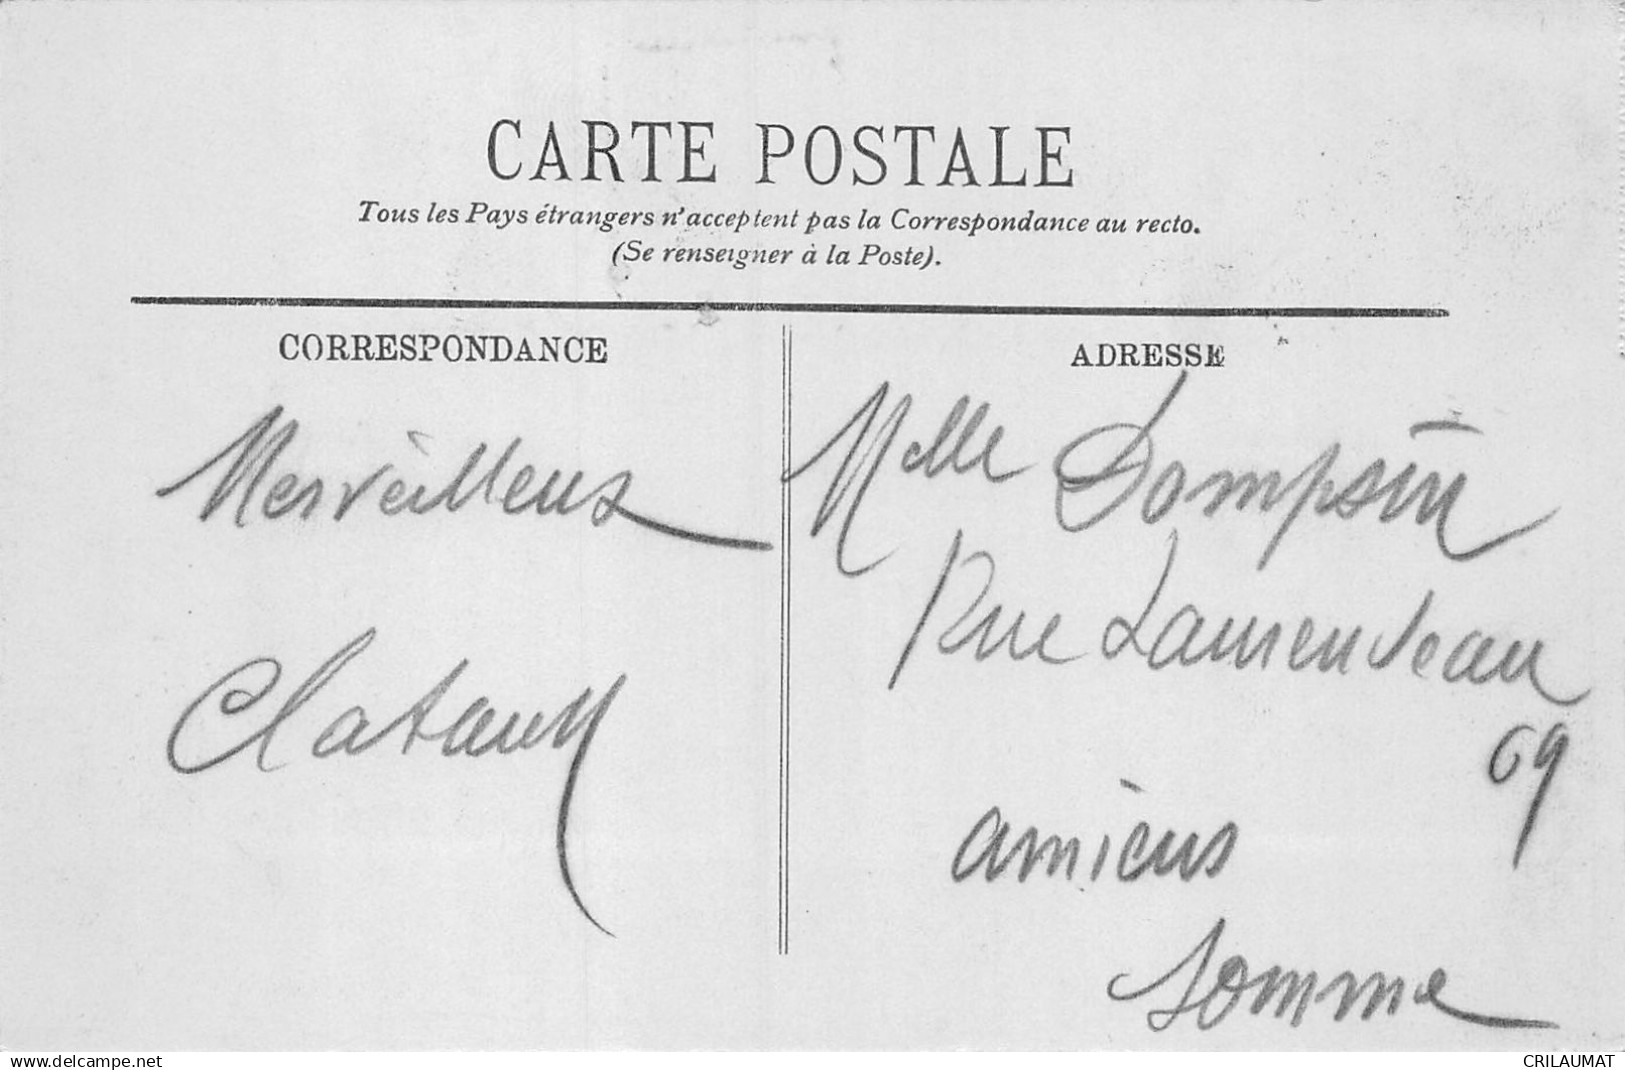 CARTE POSTALE
Tous les Pays étrangers n'acceptent pas la Correspondance au recto.
(Se renseigner à la Poste).
CORRESPONDANCE
Merveilleux
ADRESSE
Melle Dompsin
Rue Laurendeau
69
amiens
Somme
www.delcampe.net
CRILAUMAT